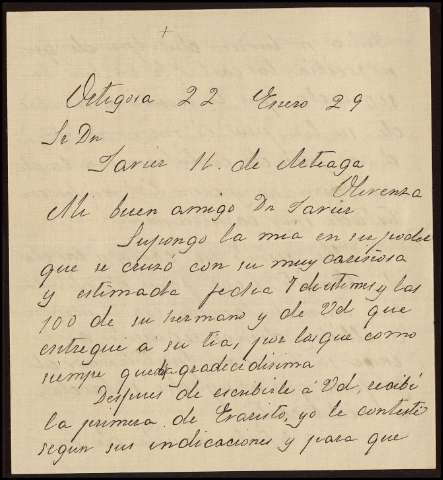 +
Ortigosa 22 Enero 29
Sr Dn
Javier M. de Arteaga
Olivenza
Mi buen amigo Dn Javier
Supongo la mia en su poder
que se cruzó con su muy cariñosa
y estimada fecha 8 del ultimo y las
100 de su hermano y de Vd que
entregue á su tia, por las que como
siempre queda gradecidisima
Despues de escribirle á Vd, recibí
la primera de Evaristo, yo le contesté
segun sus indicaciones y para que